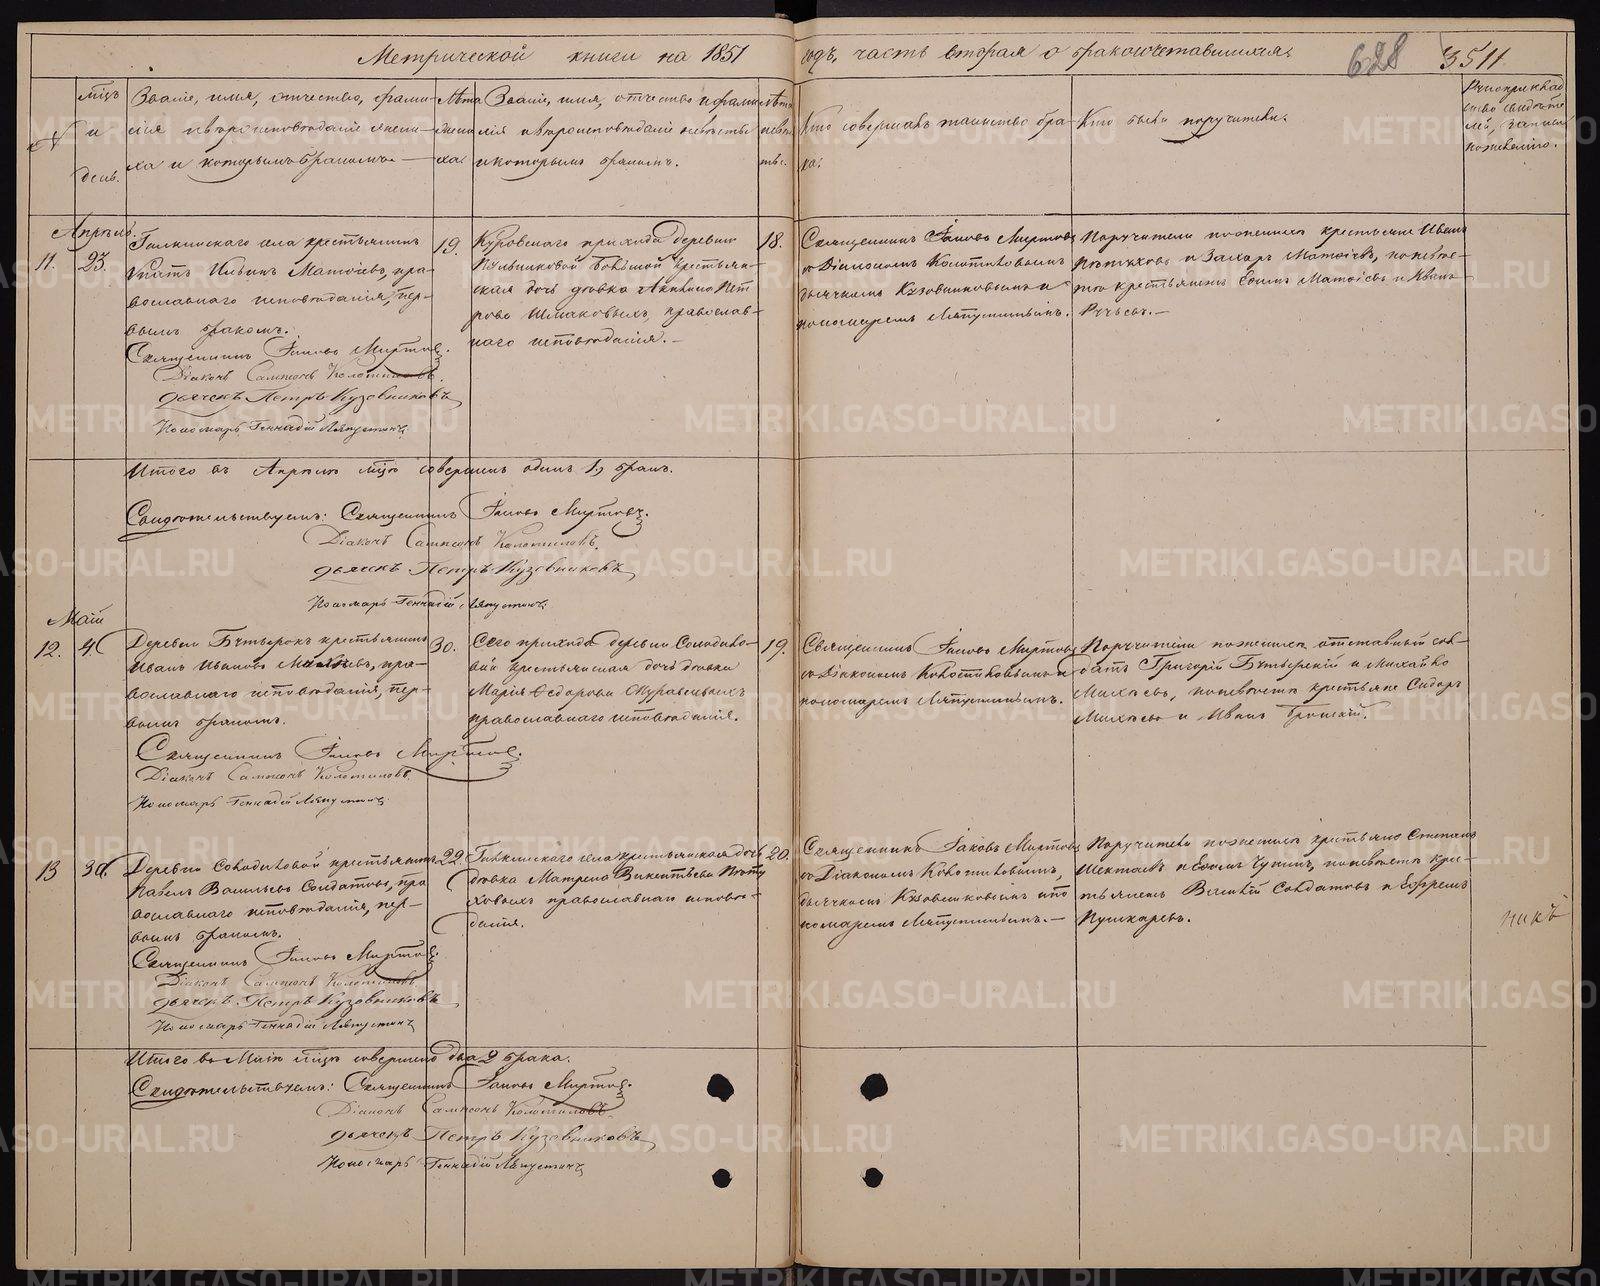 Метрической книги на 1851 годъ, часть вторая о бракосочетавшихся.
628
3511
№
мѣць
и
день.
Званіе, имя, отчество, фами-
лія и вѣроисповѣданіе жени-
ха и которымъ бракомъ.
Лѣта
жени-
ха.
Званіе, имя, отчество и фами-
лія и вѣроисповѣданіе невѣсты
и которымъ бракомъ.
Лѣта
невѣс-
ты.
Кто совершалъ таинство бра-
ка.
Кто были поручители.
Рукоприклад
ство свидѣте
лей, записи
по желанію.
Апрѣль.
11.
23.
села крестьянинъ
Игнатъ Ильинъ Матѳіевъ, пра-
вославнаго исповѣданія, пер-
вымъ бракомъ.
Священникъ Іаковъ Миртовъ.
Діаконъ Сампсонъ Колотиловъ.
дьячекъ Петръ Кузовниковъ
Пономарь Геннадій Ляпустинъ
19.
Куровскаго прихода деревни
Большой крестьян-
ская дочь дѣвка Акилина Пет
рова православ-
наго исповѣданія.
18.
Священникъ Іаковъ Миртовъ
съ Діакономъ Колотиловымъ
дьячкомъ Кузовниковымъ и
пономаремъ Ляпустинымъ.
Поручители по женихѣ крестьяне Иванъ
Пѣтуховъ и Захаръ Матѳіевъ, по невѣс-
тѣ крестьянинъ Ефимъ Матѳіевъ и Иванъ
Ручьевъ.
Итого въ Апрѣлѣ мѣцѣ совершенъ одинъ 1, бракъ.
Свидѣтельствуемъ: Священникъ Іаковъ Миртовъ.
Діаконъ Сампсонъ Колотиловъ.
дьячекъ Петръ Кузовниковъ
Пономарь Геннадій Ляпустинъ
Май
12.
4.
Деревни Бутырокъ крестьянинъ
Иванъ Ивановъ пра-
вославнаго исповѣданія, пер-
вымъ бракомъ.
Священникъ Іаковъ Миртовъ.
Діаконъ Сампсонъ Колотиловъ.
Пономарь Геннадій Ляпустинъ
30.
Сего прихода деревни Солодило-
вой крестьянская дочь дѣвка
Марія Ѳедорова Журавлевыхъ
православнаго исповѣданія.
19.
Священникъ Іаковъ Миртовъ
съ Діакономъ Колотиловымъ и
пономаремъ Ляпустинымъ.
Поручители по женихѣ отставный сол-
датъ Григорій Бутырскій и Михайло
по невѣстѣ крестьяне Сидоръ
и Иванъ
13
30.
Деревни Солодиловой крестьянинъ
Павелъ Васильевъ Солдатовъ, пра
вославнаго исповѣданія, пер-
вымъ бракомъ.
Священникъ Іаковъ Миртовъ.
Діаконъ Сампсонъ Колотиловъ
дьячекъ Петръ Кузовниковъ
Пономарь Геннадій Ляпустинъ
22.
села крестьянская дочь
дѣвка Матрена Викентьева Пѣту
ховыхъ православнаго исповѣ-
данія.
20.
Священникъ Іаковъ Миртовъ
съ Діакономъ Колотиловымъ,
дьячкомъ Кузовниковымъ и по
номаремъ Ляпустинымъ.
Поручители по женихѣ крестьяне Степанъ
и Ефимъ по невѣстѣ кре-
стьяне Василій Солдатовъ и Ефремъ
Пушкаревъ.
Итого въ Маіѣ мѣцѣ совершено два 2 брака.
Свидѣтельствуемъ: Священникъ Іаковъ Миртовъ.
Діаконъ Сампсонъ Колотиловъ.
дьячекъ Петръ Кузовниковъ
Пономарь Геннадій Ляпустинъ
METRIKI.GASO-URAL.RU